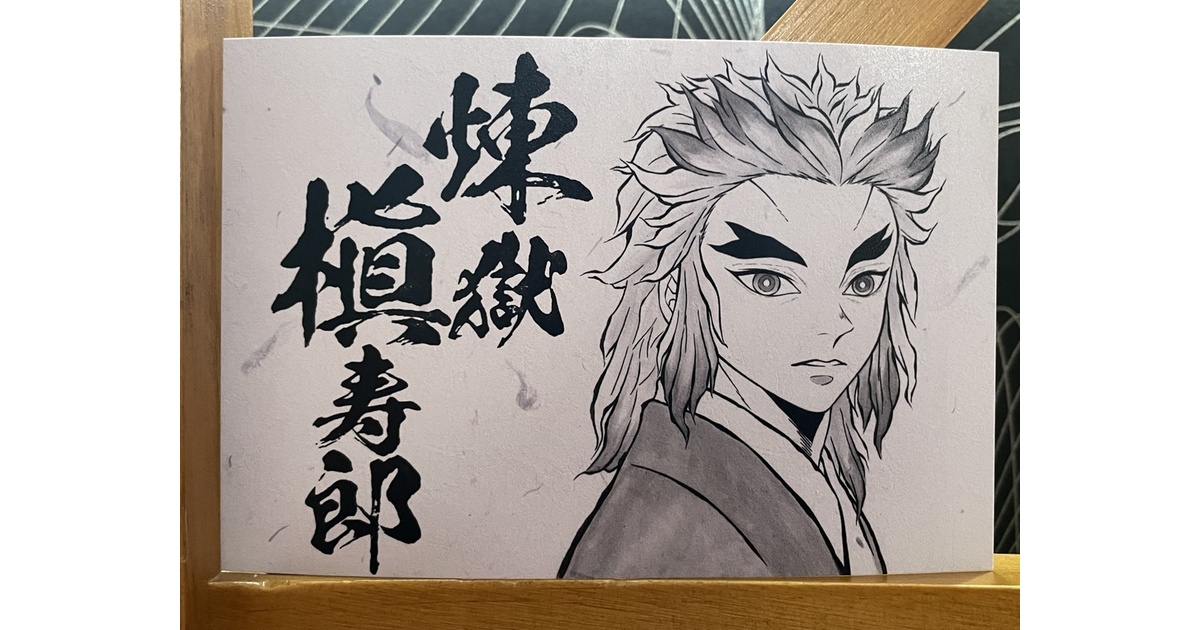 煉獄
槇寿郎